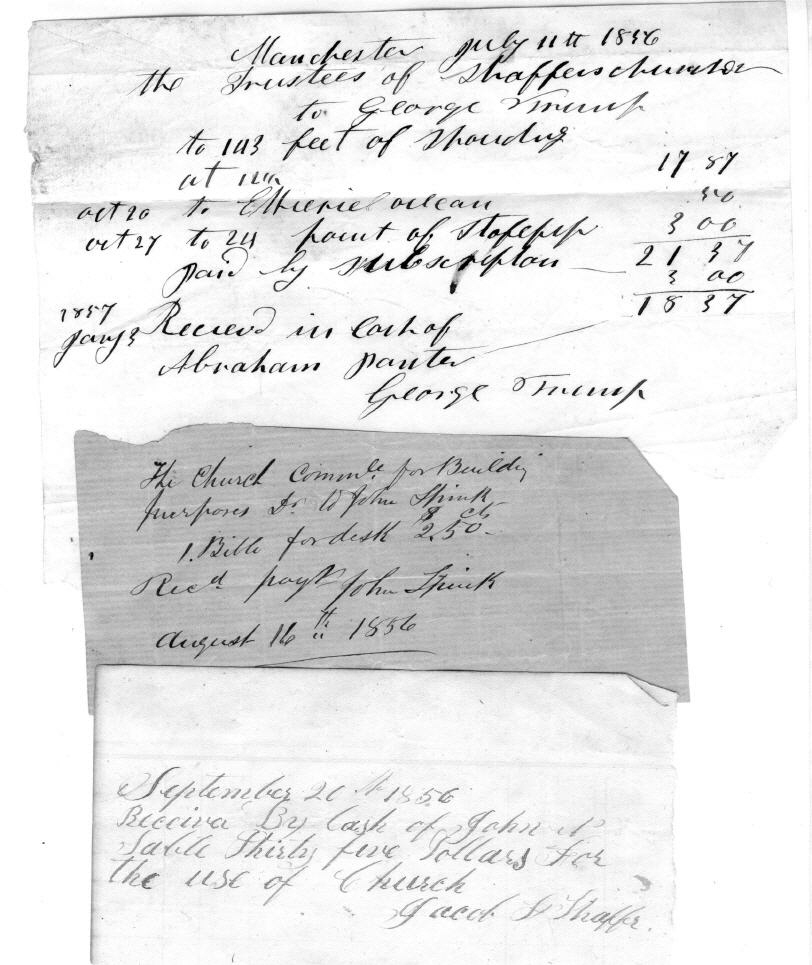 Manchester July 11th 1856
the Trustees of Shaffers church
to George Trump
to 143 feet of Spouding
at 12½ 17 87
oct 20 to oilcan 50
oct 27 to 24 pount of Stofepip 3 00
21 37
paid by Subscription 3 00
18 37
1857
Jany 3 Recieved in Cash of
Abraham panter
George Trump
The Church Commte for Building
purposes Dr to John Spink
$ cts
1 Bible for desk 2.50
Recd payt John Spink
August 16th 1856
September 20th 1856
Receiva By Cash of John
Sable Thirty five Dollars For
the use of Church
Jacob Shaffer.